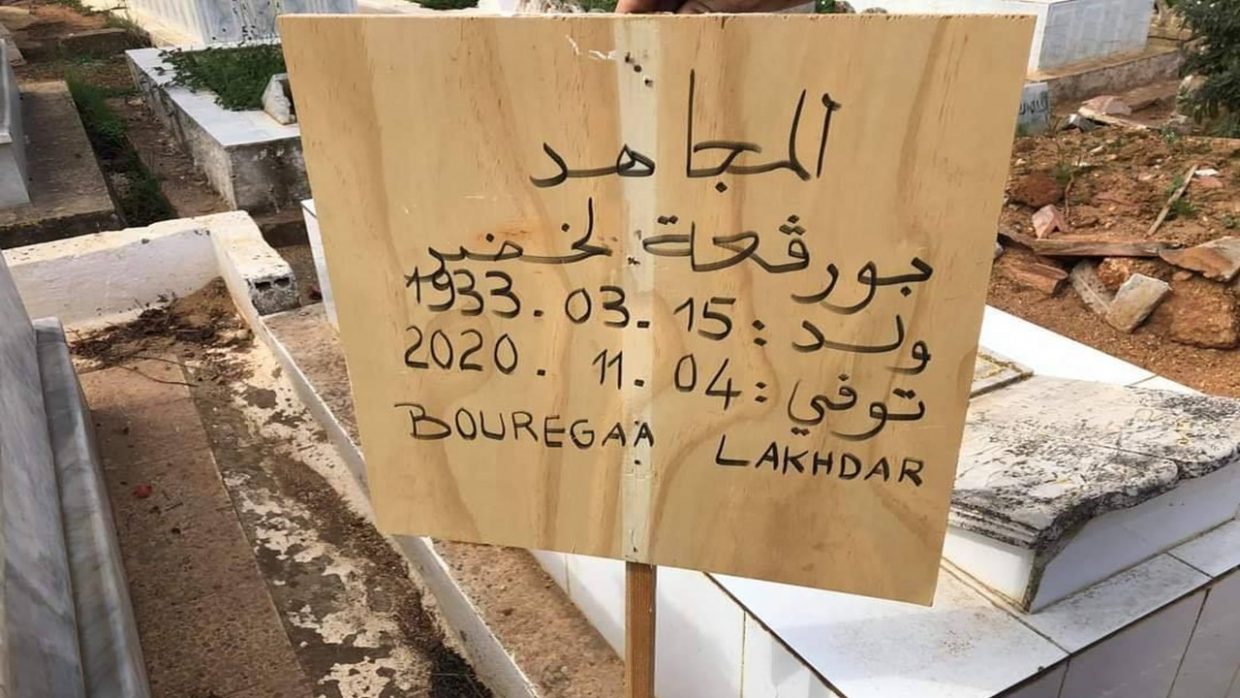 المجاهد
بورڤعة لخضر
ولد : 15 . 03 . 1933
توفي : 04 . 11 . 2020
BOUREGAA LAKHDAR